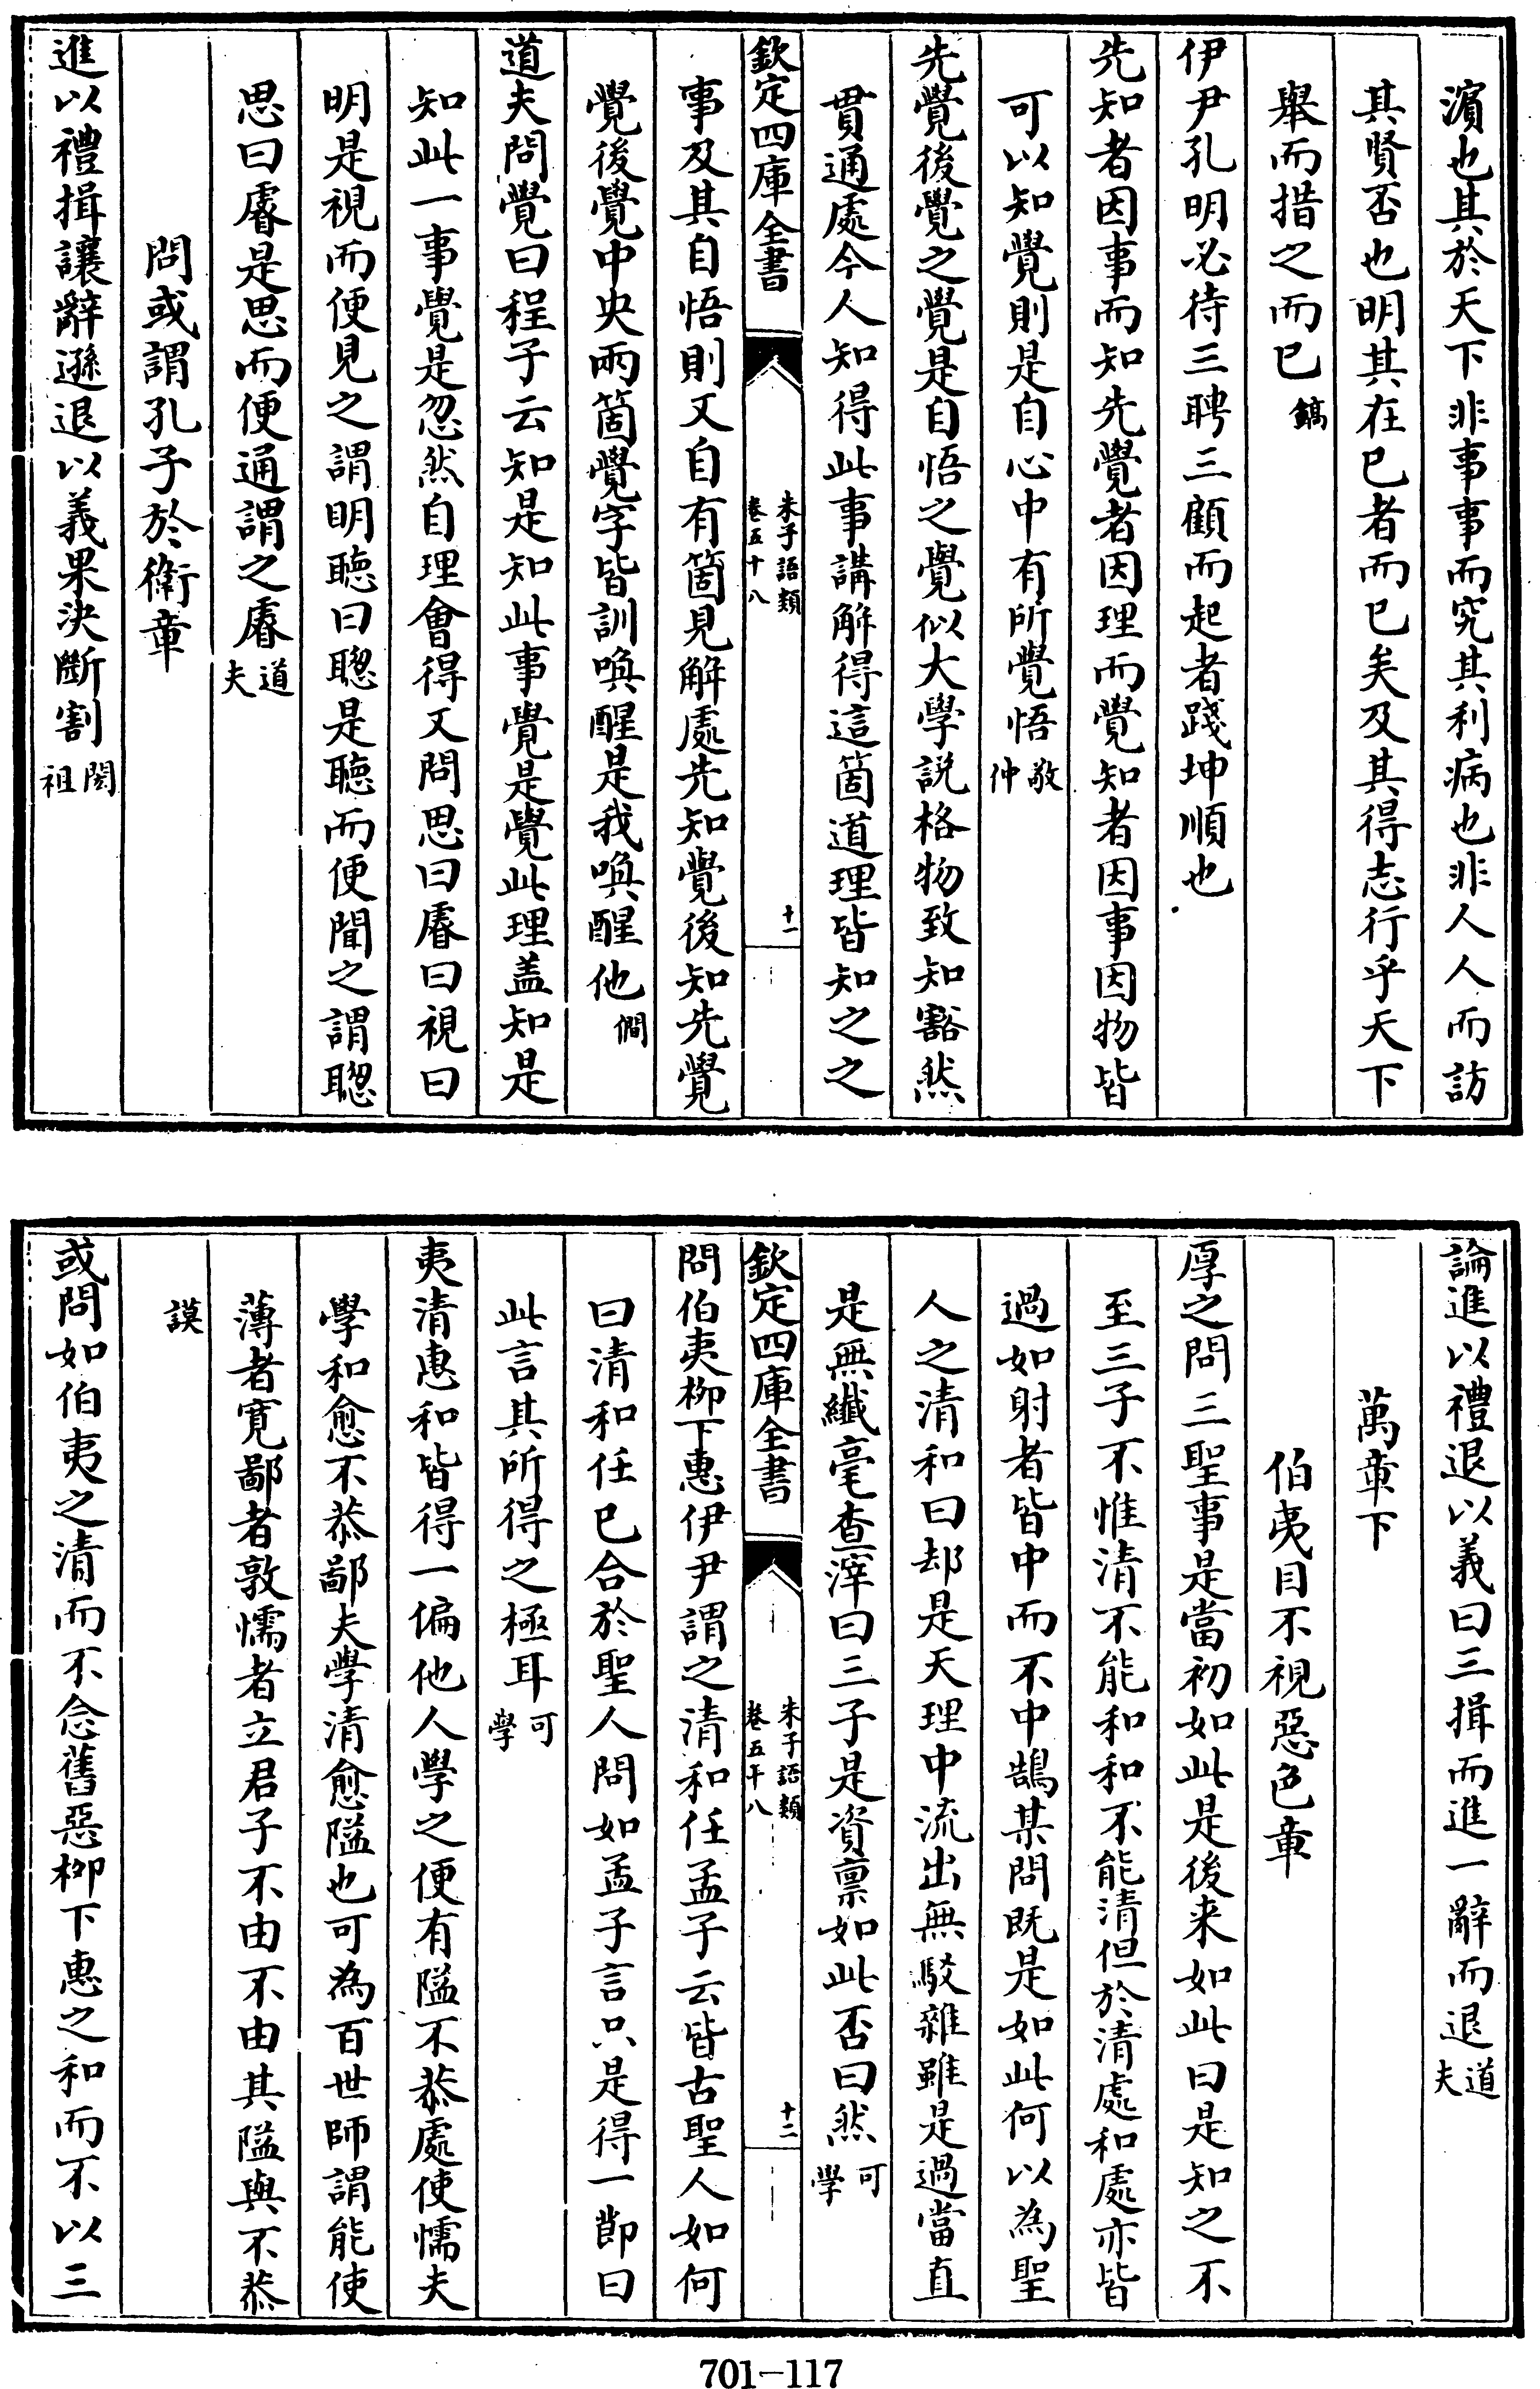 濵也其於天下非事事而究其利病也非人人而訪
其賢否也明其在已者而已矣及其得志行乎天下
舉而措之而已鎬
伊尹孔明必待三聘三顧而起者踐坤順也
先知者因事而知先覺者因理而覺知者因事因物皆
可以知覺則是自心中有所覺悟敬仲
先覺後覺之覺是自悟之覺似大學説格物致知豁然
貫通處今人知得此事講解得這箇道理皆知之之
欽定四庫全書
朱子語類
卷五十八
十一
事及其自悟則又自有箇見解處先知覺後知先覺
覺後覺中央兩箇覺字皆訓喚醒是我喚醒他僩
道夫問覺曰程子云知是知此事覺是覺此理盖知是
知此一事覺是忽然自理會得又問思曰睿曰視曰
明是視而便見之謂明聽曰聰是聽而便聞之謂聰
思曰睿是思而便通謂之睿道夫
問或謂孔子於衛章
進以禮揖讓辭遜退以義果決斷割閎祖
論進以禮退以義曰三揖而進一辭而退道夫
萬章下
伯夷目不視惡色章
厚之問三聖事是當初如此是後来如此曰是知之不
至三子不惟清不能和和不能清但於清處和處亦皆
過如射者皆中而不中鵠某問既是如此何以為聖
人之清和曰却是天理中流出無駁雜雖是過當直
是無纖毫查滓曰三子是資稟如此否曰然可學
欽定四庫全書
朱子語類
卷五十八
十二
問伯夷柳下惠伊尹謂之清和任孟子云皆古聖人如何
曰清和任已合於聖人問如孟子言只是得一節曰
此言其所得之極耳可學
夷清惠和皆得一偏他人學之便有隘不恭處使懦夫
學和愈不恭鄙夫學清愈隘也可為百世師謂能使
薄者寛鄙者敦懦者立君子不由不由其隘與不恭
謨
或問如伯夷之清而不念舊惡柳下惠之和而不以三
701-117